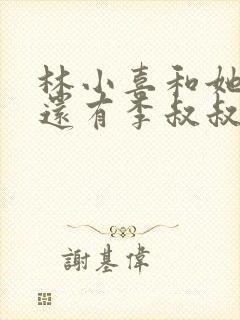 林小喜和她
還有李叔叔
謝基偉